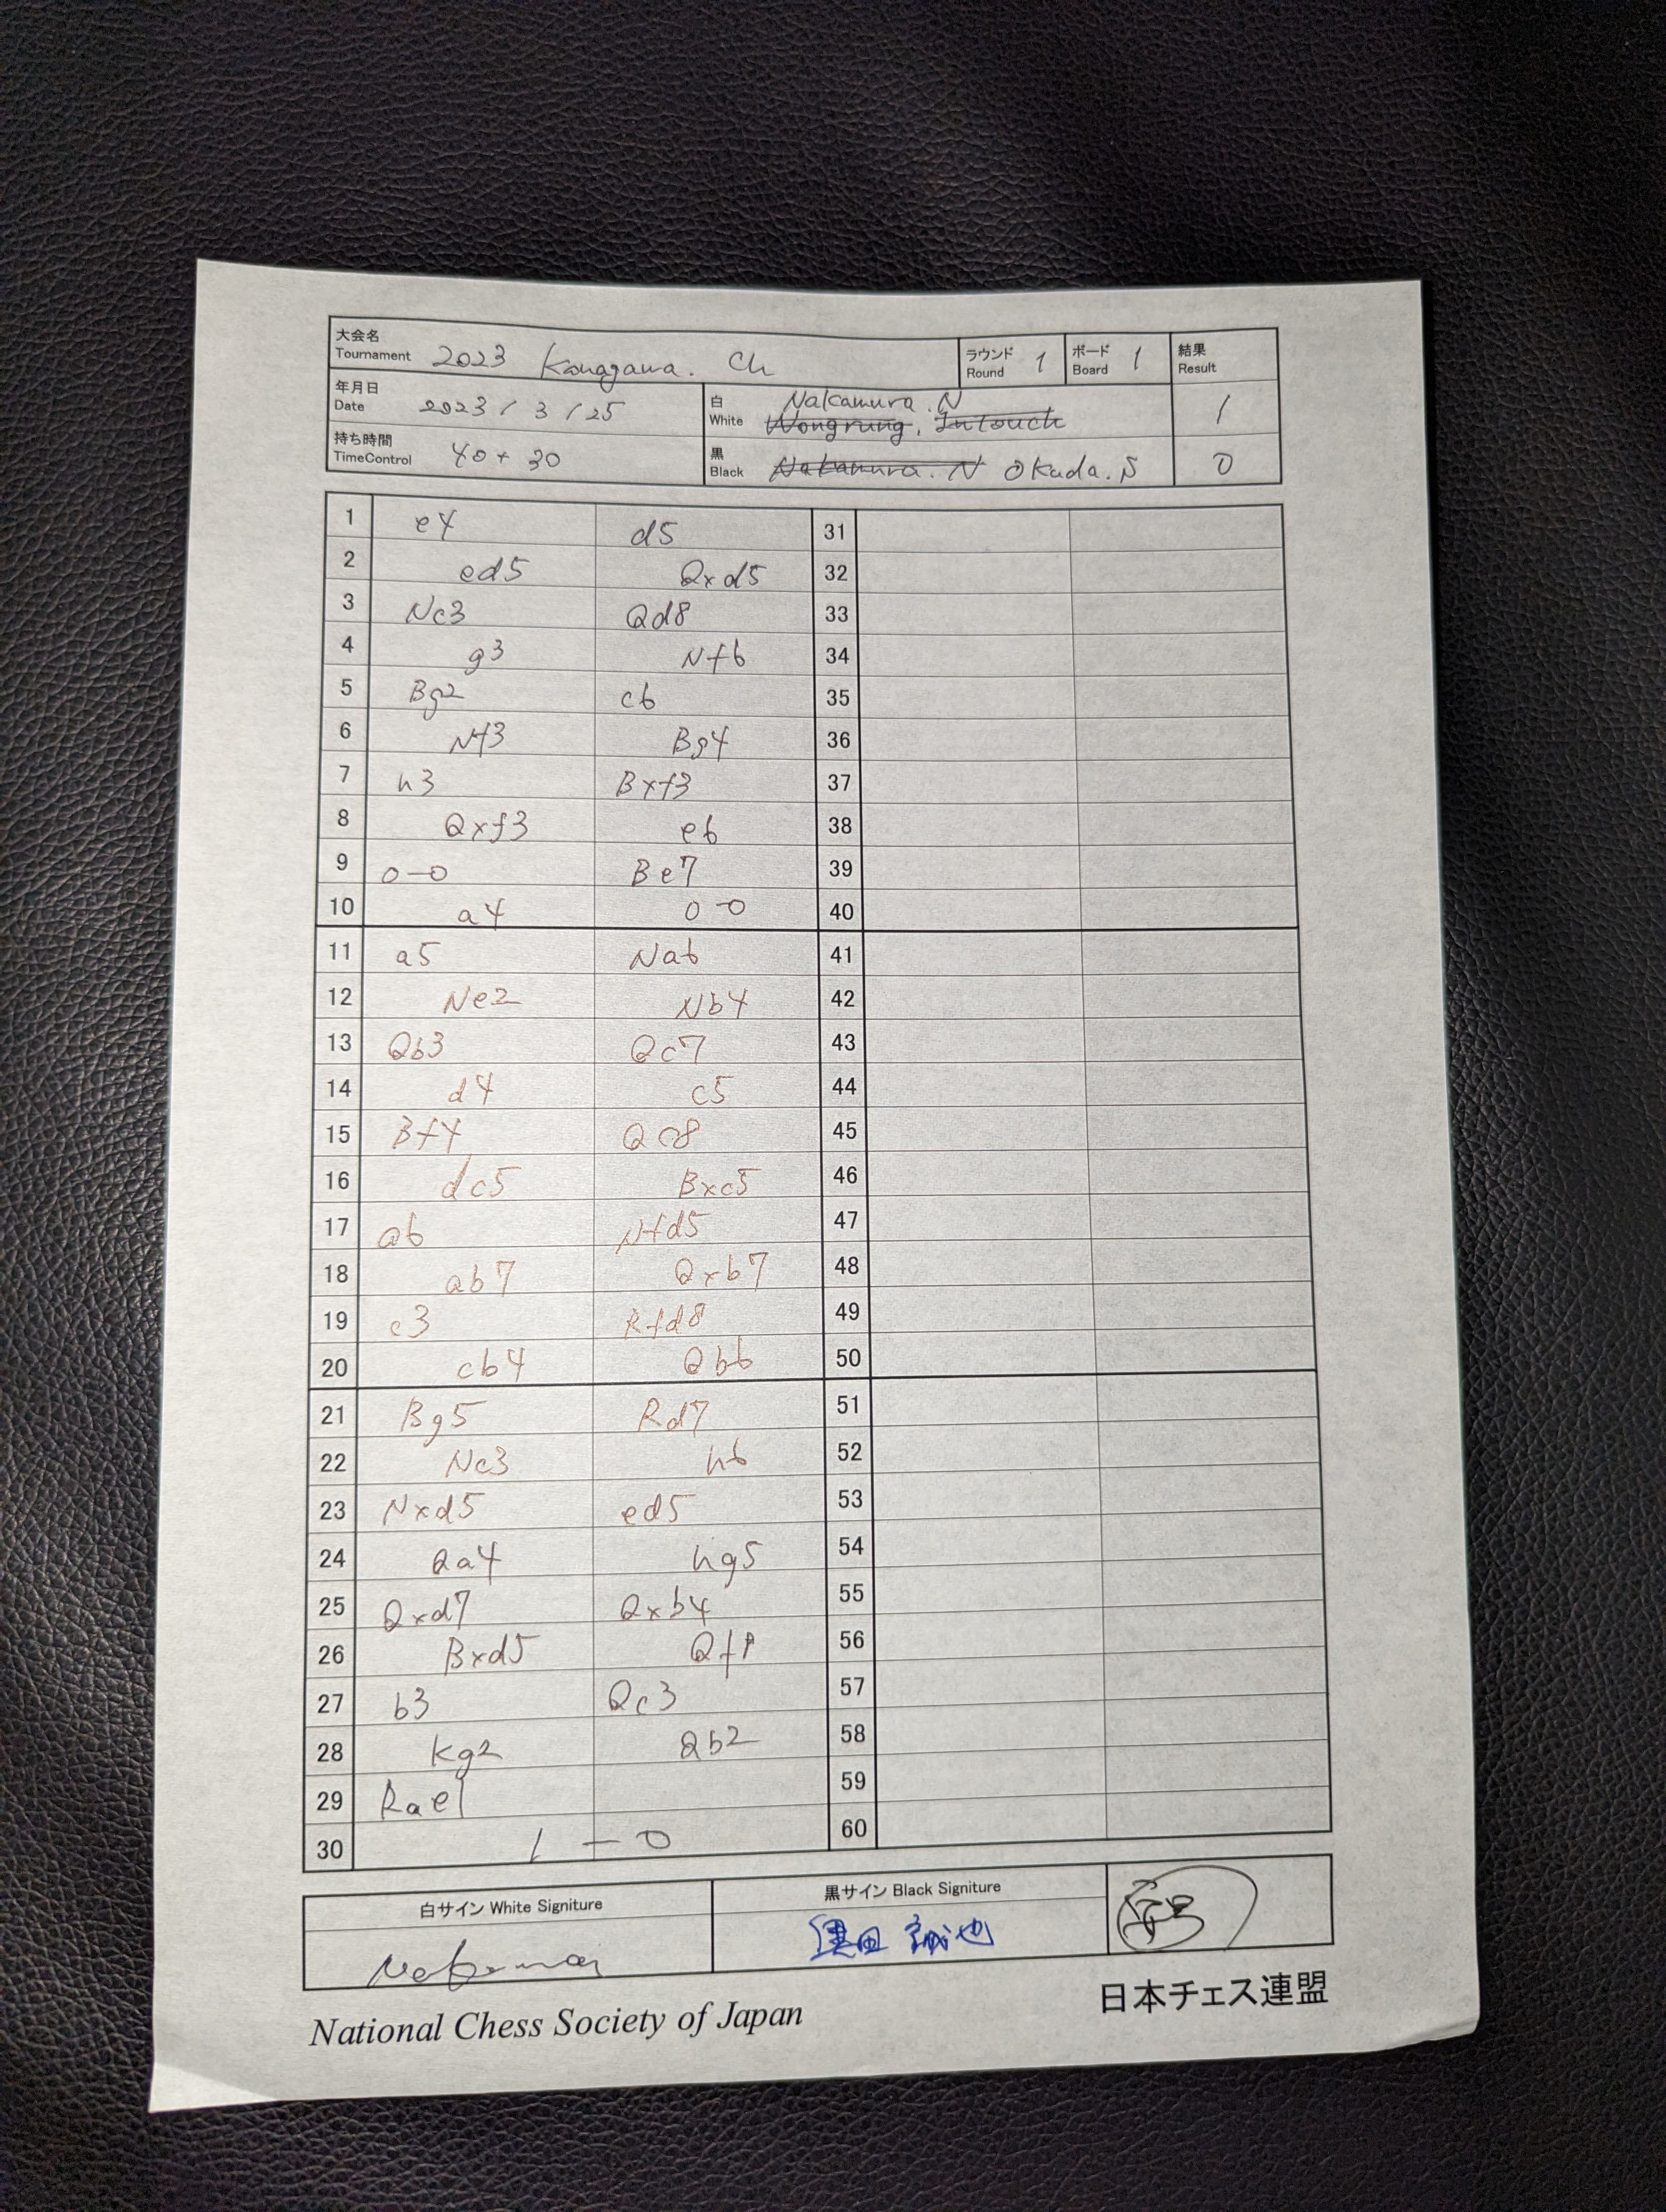 大会名
Tournament 2023 Kanagawa. Ch
ラウンド
Round 1
ボード
Board 1
結果
Result
年月日
Date 2023 / 3 / 25
白
White Nakamura. N
Wongrung, Intouch
1
持ち時間
TimeControl 40 + 30
黒
Black Nakamura. N Okada. S
0
1 e4 d5 31
2 ed5 Qxd5 32
3 Nc3 Qd8 33
4 g3 Nf6 34
5 Bg2 c6 35
6 Nf3 Bg4 36
7 h3 Bxf3 37
8 Qxf3 e6 38
9 0-0 Be7 39
10 a4 0-0 40
11 a5 Na6 41
12 Ne2 Nb4 42
13 Qb3 Qc7 43
14 d4 c5 44
15 Bf4 Qc8 45
16 dc5 Bxc5 46
17 a6 Nfd5 47
18 ab7 Qxb7 48
19 c3 Rfd8 49
20 cb4 Qb6 50
21 Bg5 Rd7 51
22 Nc3 h6 52
23 Nxd5 ed5 53
24 Qa4 hg5 54
25 Qxd7 Qxb4 55
26 Bxd5 56
27 b3 Qc3 57
28 Kg2 Qb2 58
29 Rae1 59
30 1 - 0 60
白サイン White Signiture
黒サイン Black Signiture
田 誠也
National Chess Society of Japan
日本チェス連盟